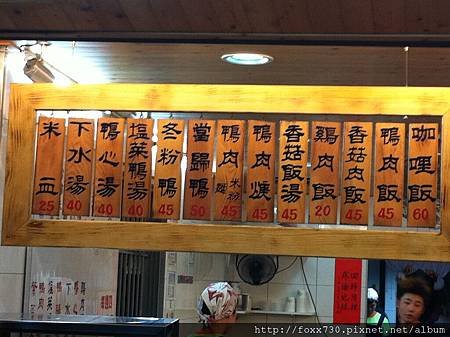 咖哩飯 60
鴨肉飯 45
香菇肉飯 45
雞肉飯 20
香菇飯湯 45
鴨肉焿 45
鴨肉米粉/麵 45
當歸鴨 50
冬粉鴨 45
塩菜鴨湯 40
鴨心湯 40
下水湯 40
米血 25
http://foxx730.pixnet.net/album